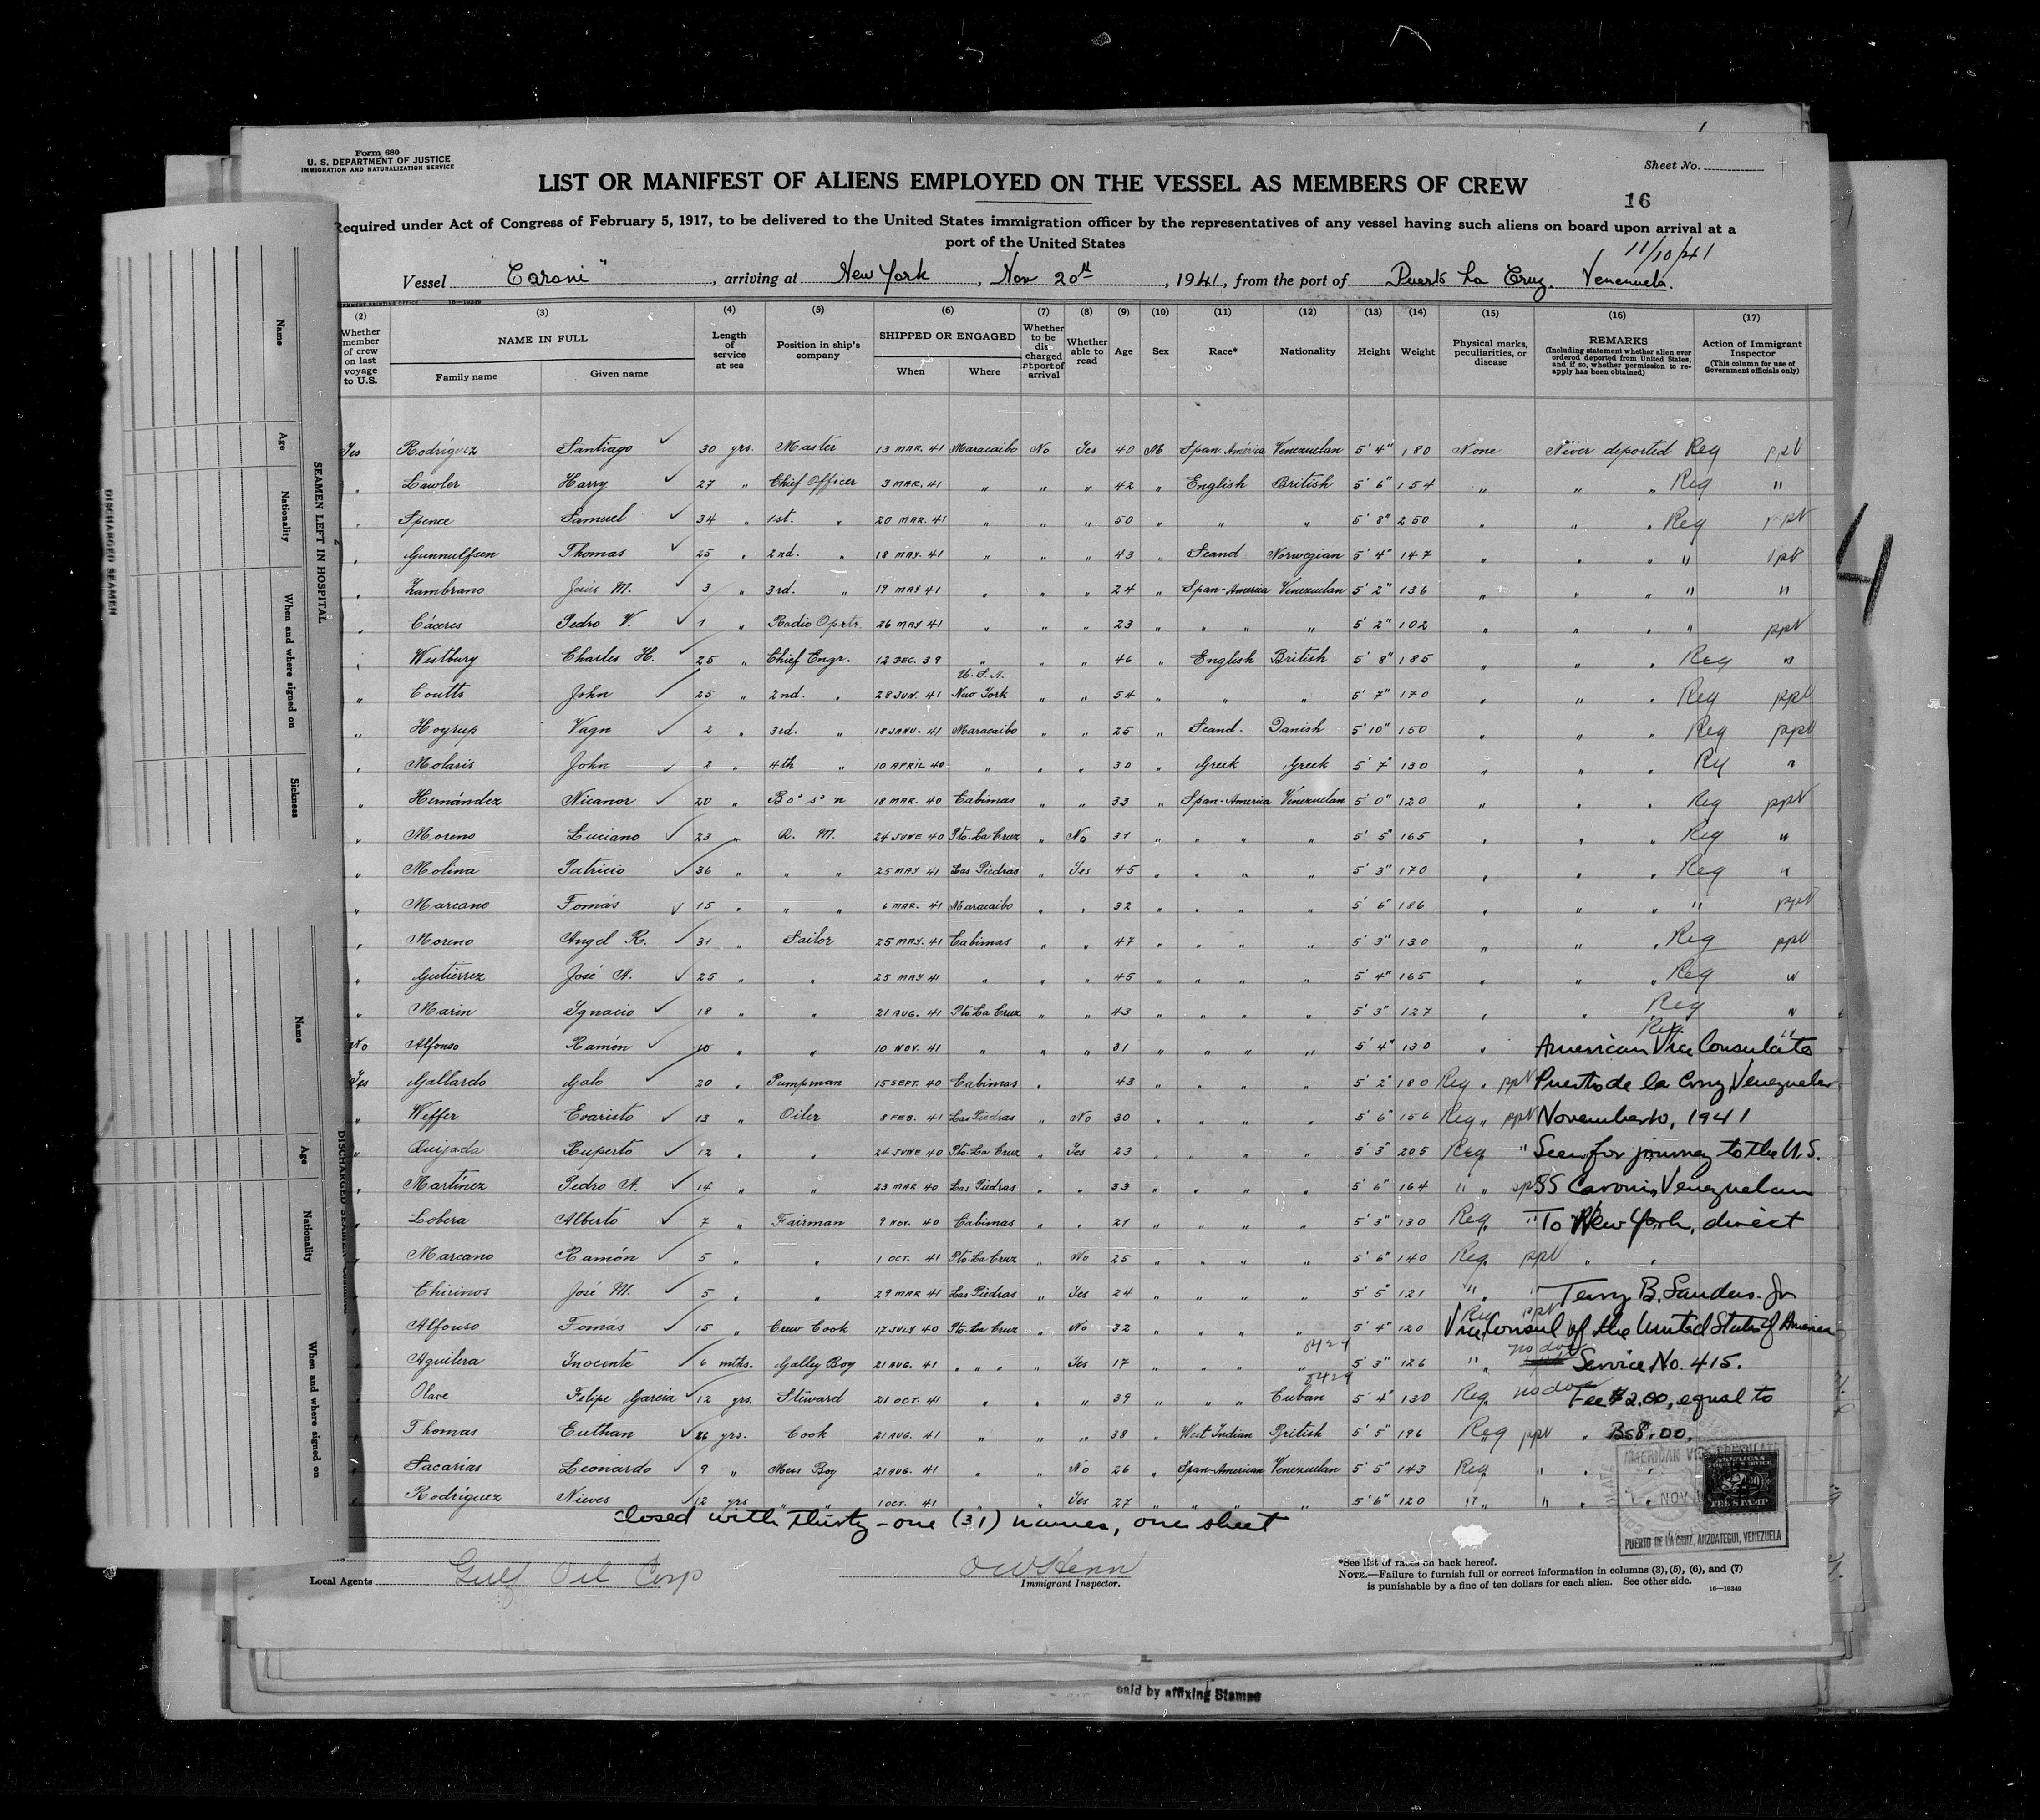 Form 680
U. S. DEPARTMENT OF JUSTICE
IMMIGRATION AND NATURALIZATION SERVICE
Sheet No.
LIST OR MANIFEST OF ALIENS EMPLOYED ON THE VESSEL AS MEMBERS OF CREW
16
Required under Act of Congress of February 5, 1917, to be delivered to the United States immigration officer by the representatives of any vessel having such aliens on board upon arrival at a
port of the United States
11/10/41
Vessel "Caroni", arriving at New York, Nov 20th, 1941, from the port of Puerto La Cruz. Venezuela.
16—19349
(2) (3) (4) (5) (6) (7) (8) (9) (10) (11) (12) (13) (14) (15) (16) (17)
Whether member of crew on last voyage to U.S. NAME IN FULL Family name Given name Length of service at sea Position in ship's company SHIPPED OR ENGAGED When Where Whether to be discharged at port of arrival Whether able to read Age Sex Race* Nationality Height Weight Physical marks, peculiarities, or disease REMARKS (Including statement whether alien ever ordered deported from United States, and if so, whether permission to reapply has been obtained) Action of Immigrant Inspector (This column for use of Government officials only)
Yes Rodríguez Santiago 30 yrs. Master 13 MAR. 41 Maracaibo No Yes 40 M Span. América Venezuelan 5' 4" 180 None Never deported Reg ppV
" Lawler Harry 27 " Chief Officer 3 MAR. 41 " " " 42 " English British 5' 6" 154 " " " Reg "
" Spence Samuel 34 " 1st. " 20 MAR. 41 " " " 50 " " " 5' 8" 250 " " " Reg ppV
" Gunnulfsen Thomas 25 " 2nd. " 18 MAY. 41 " " " 43 " Scand Norwegian 5' 4" 147 " " " " ppV
" Zambrano Jesús M. 3 " 3rd. " 19 MAY 41 " " " 24 " Span-America Venezuelan 5' 2" 136 " " " " "
" Cáceres Pedro V. 1 " Radio Opertr. 26 MAY 41 " " " 23 " " " " 5' 2" 102 " " " " ppV
" Westbury Charles H. 25 " Chief Engr. 12 DEC. 39 " " " 46 " English British 5' 8" 185 " " " Reg "
" Coutts John 25 " 2nd. " 28 JUN. 41 U.S.A. New York " " 54 " " " 5' 7" 170 " " " Reg ppV
" Hoyrup Vagn 2 " 3rd. " 18 JANU. 41 Maracaibo " " 25 " Scand. Danish 5' 10" 150 " " " Reg ppV
" Molaris John 2 " 4th " 10 APRIL 40 " " " 30 " Greek Greek 5' 7" 130 " " " Reg "
" Hernández Nicanor 20 " Bo's'n 18 MAR. 40 Cabimas " " 33 " Span-America Venezuelan 5' 0" 120 " " " Reg ppV
" Moreno Luciano 23 " Q. M. 24 JUNE 40 Pto. La Cruz " No 31 " " " " 5' 5" 165 " " " Reg "
" Molina Patricio 36 " " " 25 MAY 41 Las Piedras " Yes 45 " " " " 5' 3" 170 " " " Reg "
" Marcano Tomás 15 " " " 6 MAR. 41 Maracaibo " " 32 " " " " 5' 6" 186 " " " " ppV
" Moreno Angel R. 31 " Sailor 25 MAY. 41 Cabimas " " 47 " " " " 5' 3" 130 " " " Reg ppV
" Gutierrez José A. 25 " " 25 MAY 41 " " " 45 " " " " 5' 4" 165 " " " Reg "
" Marin Ygnacio 18 " " 21 AUG. 41 Pto La Cruz " " 43 " " " " 5' 3" 127 " " " Reg "
No Alfonso Ramón 10 " " 10 NOV. 41 " " " 31 " " " " 5' 4" 130 " Reg. " American Vice Consulate
Yes Gallardo Galo 20 " Pumpman 15 SEPT. 40 Cabimas " 43 " " " " 5' 2" 180 Reg " ppV Puerto de la Cruz, Venezuela
" Weffer Evaristo 13 " Oiler 8 FEB. 41 Las Piedras " No 30 " " " " 5' 6" 156 Reg " ppV November 10, 1941
" Quijada Ruperto 12 " " 24 JUNE 40 Pto. La Cruz " Yes 23 " " " " 5' 3" 205 Reg " Seen for journey to the U.S.
" Martínez Pedro A. 14 " " 23 MAR 40 Las Piedras " " 33 " " " " 5' 6" 164 " " ppV SS Caroni, Venezuelan
" Lobera Alberto 7 " Fairman 9 NOV. 40 Cabimas " " 21 " " " " 5' 3" 130 Reg. " To New York, direct
" Marcano Ramón 5 " " 1 OCT. 41 Pto. La Cruz " No 25 " " " " 5' 6" 140 Reg. ppV " "
" Chirinos José M. 5 " " 29 MAR 41 Las Piedras " Yes 24 " " " " 5' 5" 121 " " " Terry B. Sanders. Jr
" Alfonso Tomás 15 " Crew Cook 17 JULY 40 Pto. La Cruz " No 32 " " " " 5' 4" 120 Reg ppV Vice Consul of the United States of America
" Aguilera Inocente 6 mths. Galley Boy 21 AUG. 41 " " " " Yes 17 " " " " 8429 5' 3" 126 " " no doc Service No. 415.
" Olave Felipe Garcia 12 yrs. Steward 21 OCT. 41 " " " 39 " " " 8429 Cuban 5' 4" 130 Reg. no doc Fee $2.00, equal to
" Thomas Euthan 26 yrs. Cook 21 AUG. 41 " " " 38 " West Indian British 5' 5" 196 Reg ppV " Bs8.00.
" Sacarías Leonardo 9 " Mess Boy 21 AUG. 41 " " No 26 " Span-American Venezuelan 5' 5" 143 Reg " "
" Rodríguez Nieves 12 yrs " " 1 OCT. 41 " " Yes 27 " " " " 5' 6" 120 " " " "
closed with thirty-one (31) names, one sheet
AMERICAN VICE CONSULATE
NOV
FEE STAMP
PUERTO DE LA CRUZ, ANZOATEGUI, VENEZUELA
Local Agents Gulf Oil Corp
O W Henn
Immigrant Inspector.
*See list of races on back hereof.
NOTE.—Failure to furnish full or correct information in columns (3), (5), (6), and (7)
is punishable by a fine of ten dollars for each alien. See other side.
16—19349
paid by affixing Stamps
4
SEAMEN LEFT IN HOSPITAL
Name
Age
Nationality
When and where signed on
Sickness
DISCHARGED SEAMEN
Name
Age
Nationality
When and where signed on